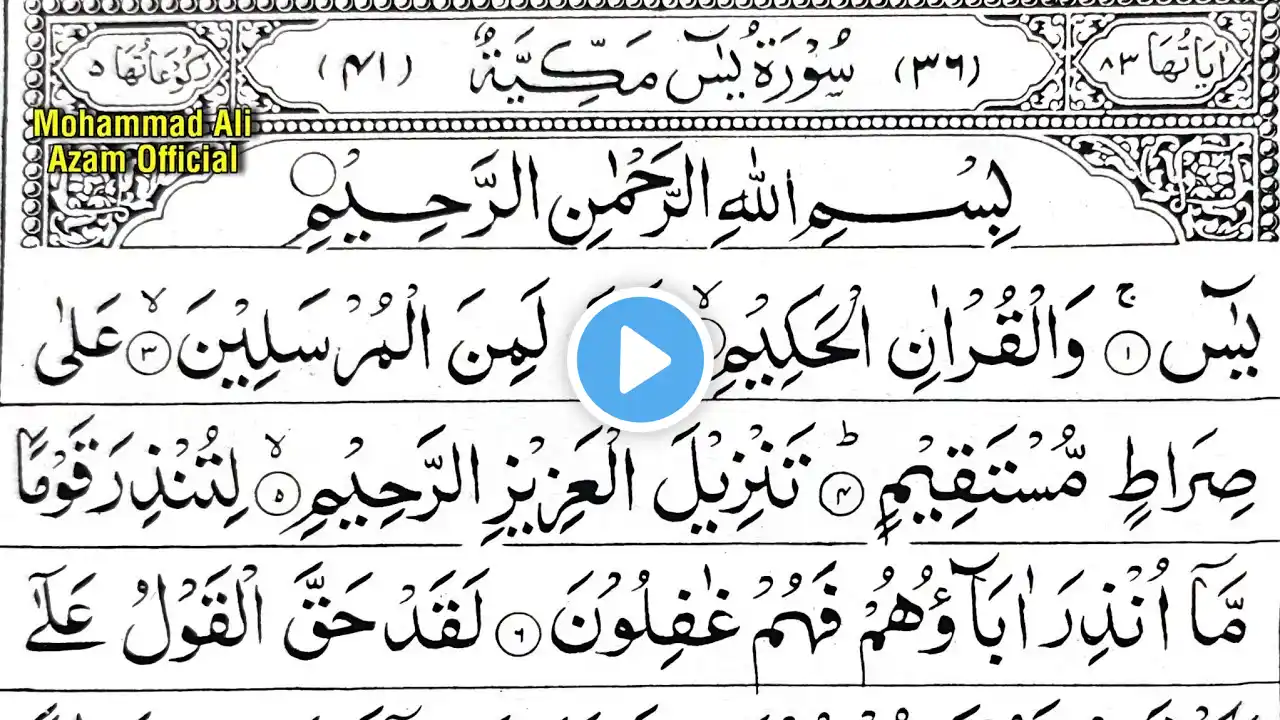 اٰيَاتُهَا ٨٣ (٣٦) سُوْرَةُ يٰسٓ مَكِّيَّةٌ (٤١) رُكُوْعَاتُهَا ٥
Mohammad Ali
Azam Official
بِسْمِ اللهِ الرَّحْمٰنِ الرَّحِيْمِ
يٰسٓ ۚ ١ وَالْقُرْاٰنِ الْحَكِيْمِ ۙ لَمِنَ الْمُرْسَلِيْنَ ۙ ٣ عَلٰى
صِرَاطٍ مُّسْتَقِيْمٍ ؕ ۴ تَنْزِيْلَ الْعَزِيْزِ الرَّحِيْمِ ۙ ۵ لِتُنْذِرَ قَوْمًا
مَّاۤ اُنْذِرَ اٰبَآؤُهُمْ فَهُمْ غٰفِلُوْنَ ۶ لَقَدْ حَقَّ الْقَوْلُ عَلٰۤى